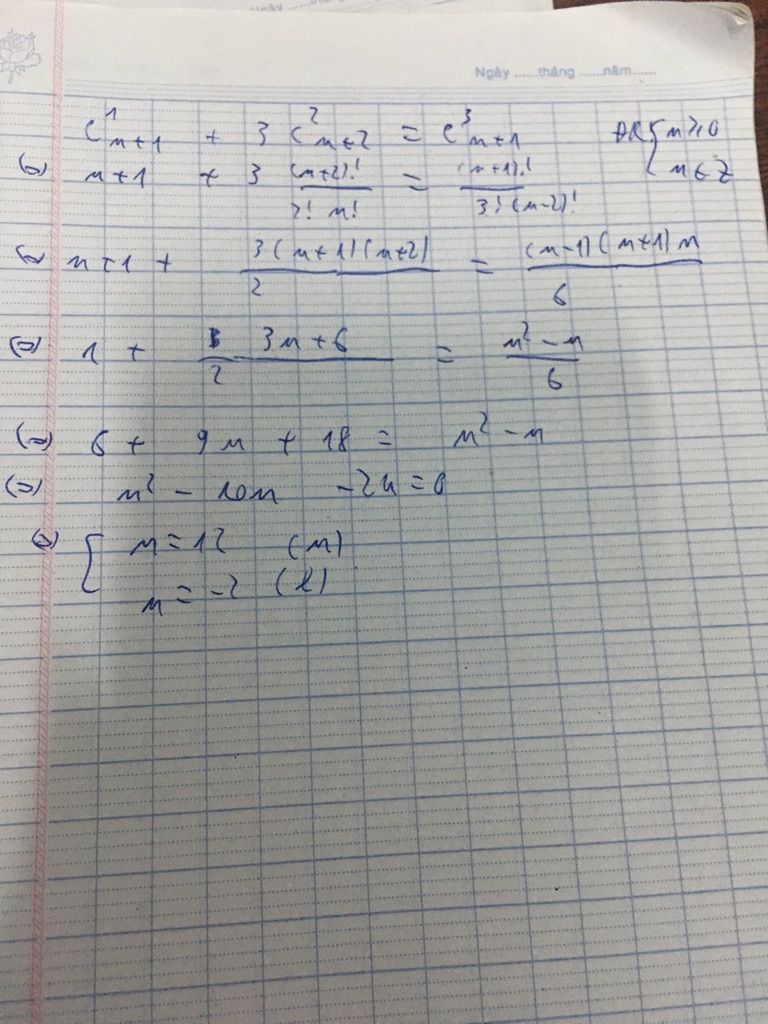 Ngày ......tháng ......năm......
C¹ₙ₊₁ + 3 C²ₙ₊₂ = C³ₙ₊₁ ĐK { n ≥ 0
(=) n+1 + 3 (n+2)!/2! n! = (n+1)!/3! (n-2)! n ∈ Z
(=) n+1 + 3(n+1)(n+2)/2 = (n-1)(n+1)n/6
(=) 1 + 3n+6/2 = n²-n/6
(=) 6 + 9n + 18 = n² - n
(=) n² - 10n - 24 = 0
(=) [ n = 12 (n)
n = -2 (l)